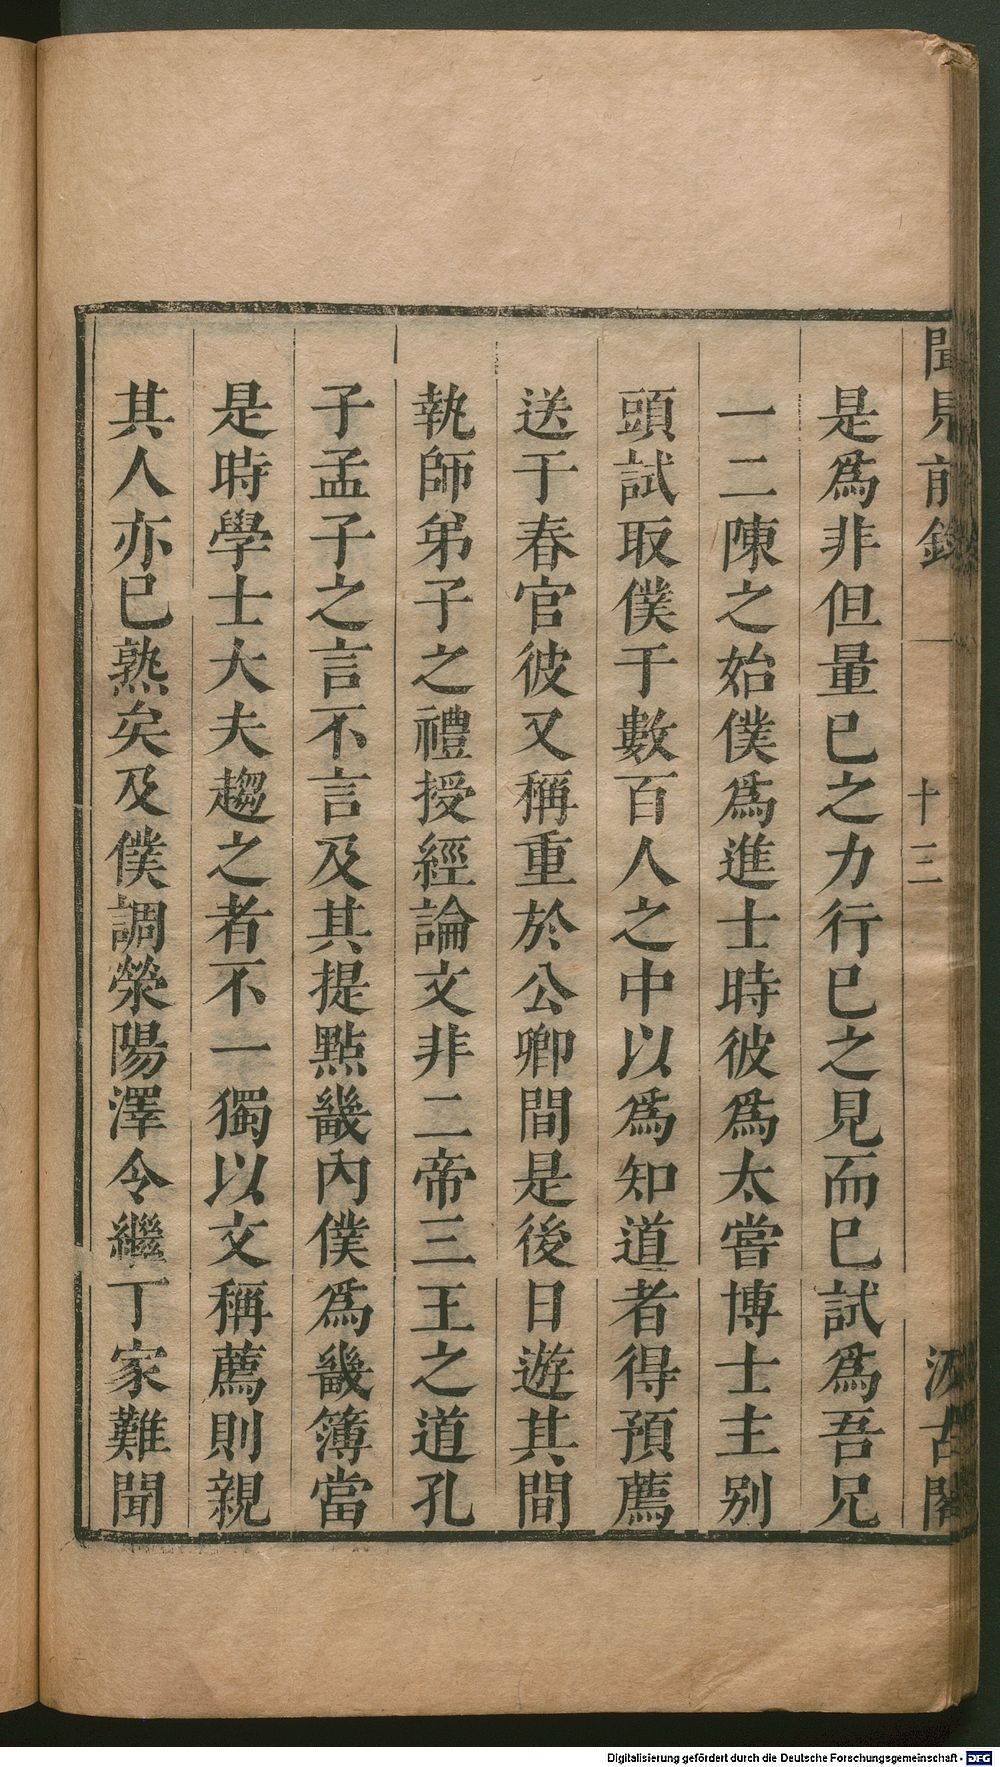 聞見前錄
十三
汲古閣
是爲非但量巳之力行巳之見而巳試爲吾兄
一二陳之始僕爲進士時彼爲太嘗博士主别
頭試取僕于數百人之中以爲知道者得預薦
送于春官彼又稱重於公卿間是後日遊其間
執師弟子之禮授經論文非二帝三王之道孔
子孟子之言不言及其提點畿內僕爲畿簿當
是時學士大夫趨之者不一獨以文稱薦則親
其人亦巳熟矣及僕調滎陽澤令繼丁家難聞
Digitalisierung gefördert durch die Deutsche Forschungsgemeinschaft - DFG